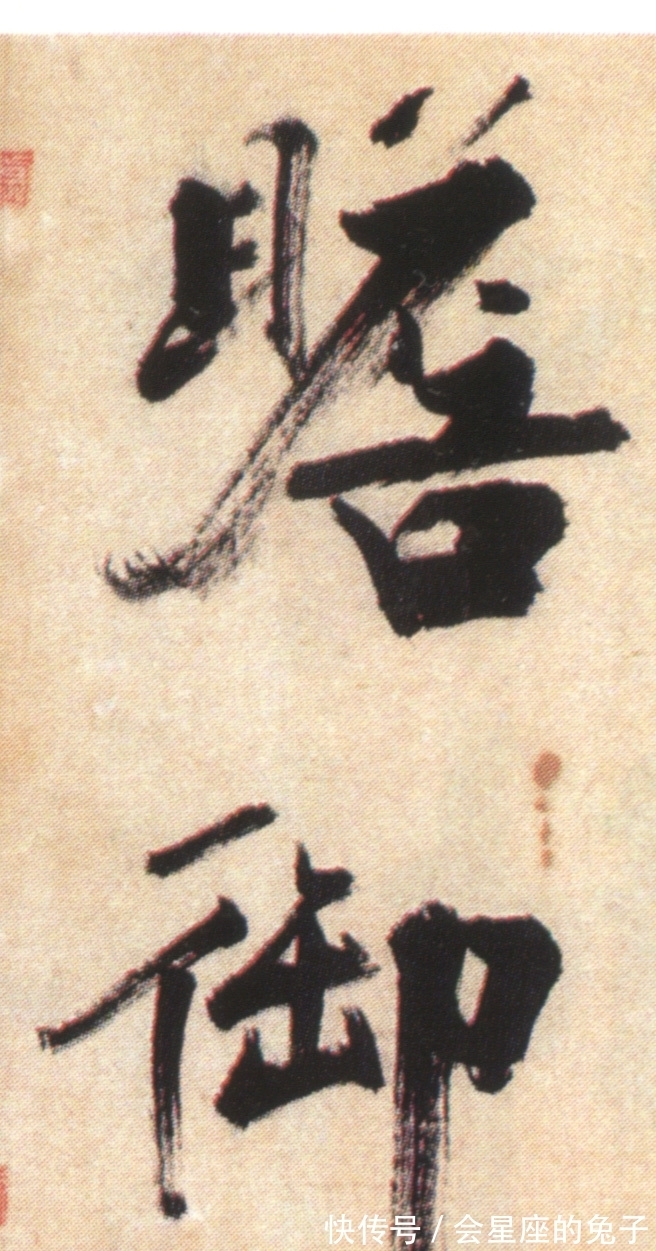 瞻
御
快传号 / 会星座的兔子